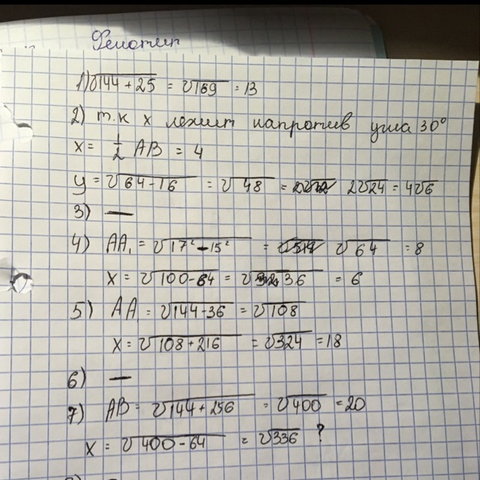 Фенотип
1) √144+25 = √169 = 13
2) т.к x лежит напротив угла 30°
x = 1/2 AB = 4
y = √64-16 = √48 = 2√24 = 4√6
3) —
4) AA₁ = √17²-15² = √64 = 8
x = √100-64 = √36 = 6
5) AA = √144-36 = √108
x = √108+216 = √324 = 18
6) —
7) AB = √144+256 = √400 = 20
x = √400-64 = √336 ?